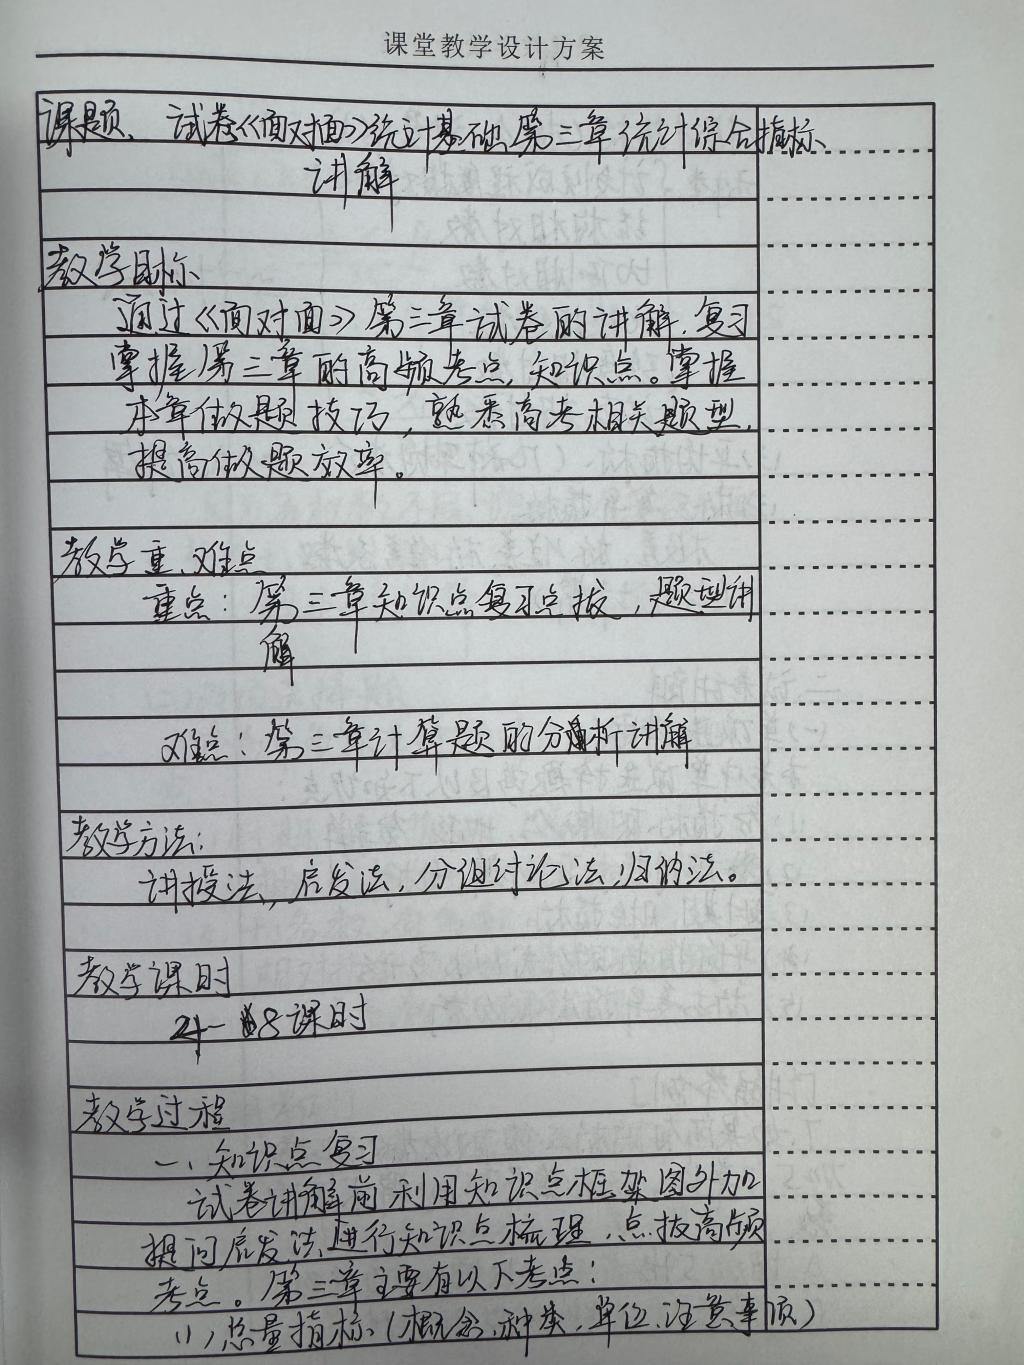 课堂教学设计方案
课题、试卷《面对面》统计基础第三章统计综合指标
讲解
教学目标
通过《面对面》第三章试卷的讲解.复习
掌握第三章的高频考点,知识点。掌握
本章做题技巧,熟悉高考相关题型,
提高做题效率。
教学重、难点
重点:第三章知识点复习点拔,题型讲
解
难点:第三章计算题的分析讲解
教学方法:
讲授法、启发法,分组讨论法,归纳法。
教学课时
4—8课时
教学过程
一、知识点复习
试卷讲解前利用知识点框架图外加
提问启发法进行知识点梳理,点拔高频
考点。第三章主要有以下考点:
(1)总量指标(概念、种类,单位、注意事项)